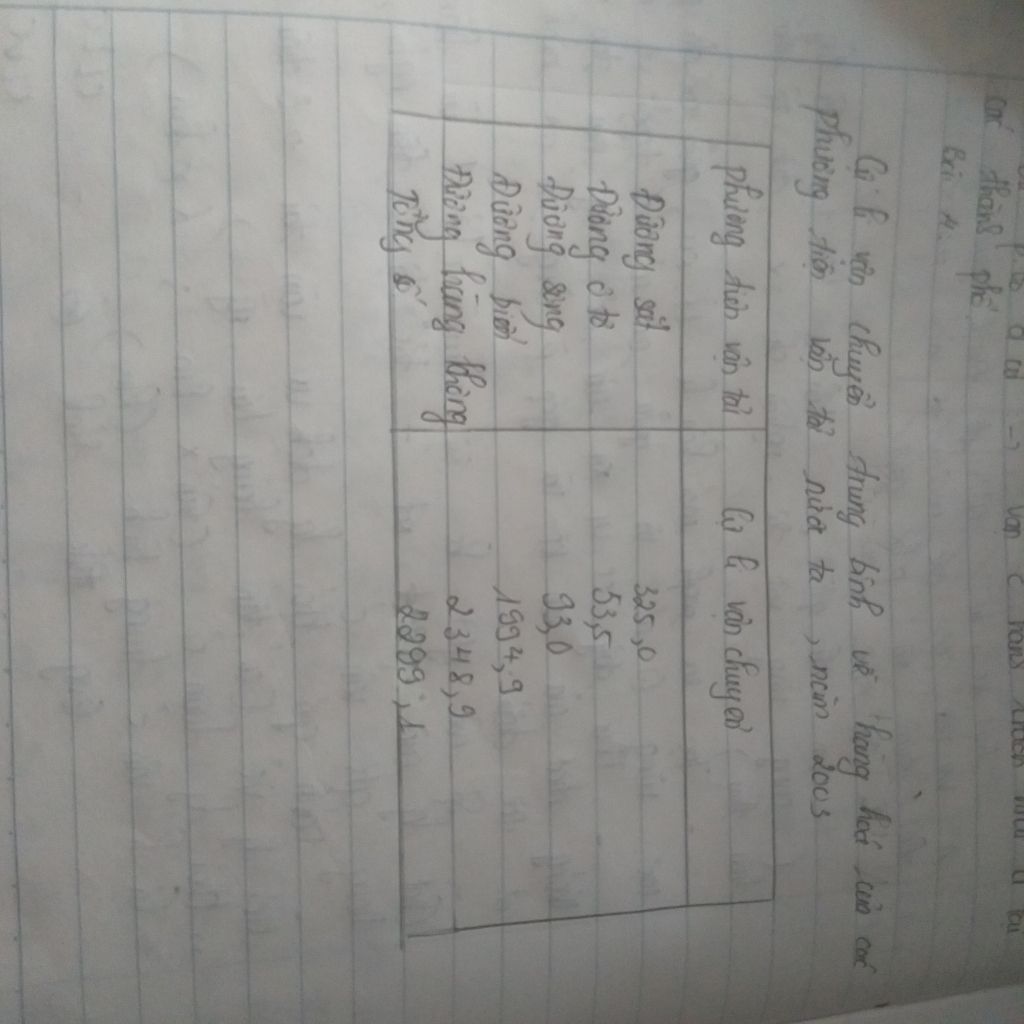 các thành phố
Bài 4.
Cự li vận chuyển trung bình về hàng hoá của các
phương tiện vận tải nước ta , năm 2003
phương tiện vận tải Cự li vận chuyển
Đường sắt 325,0
Đường ô tô 53,5
Đường sông 93,0
Đường biển 1994,9
Đường hàng không 2348,9
Tổng số 2299,1